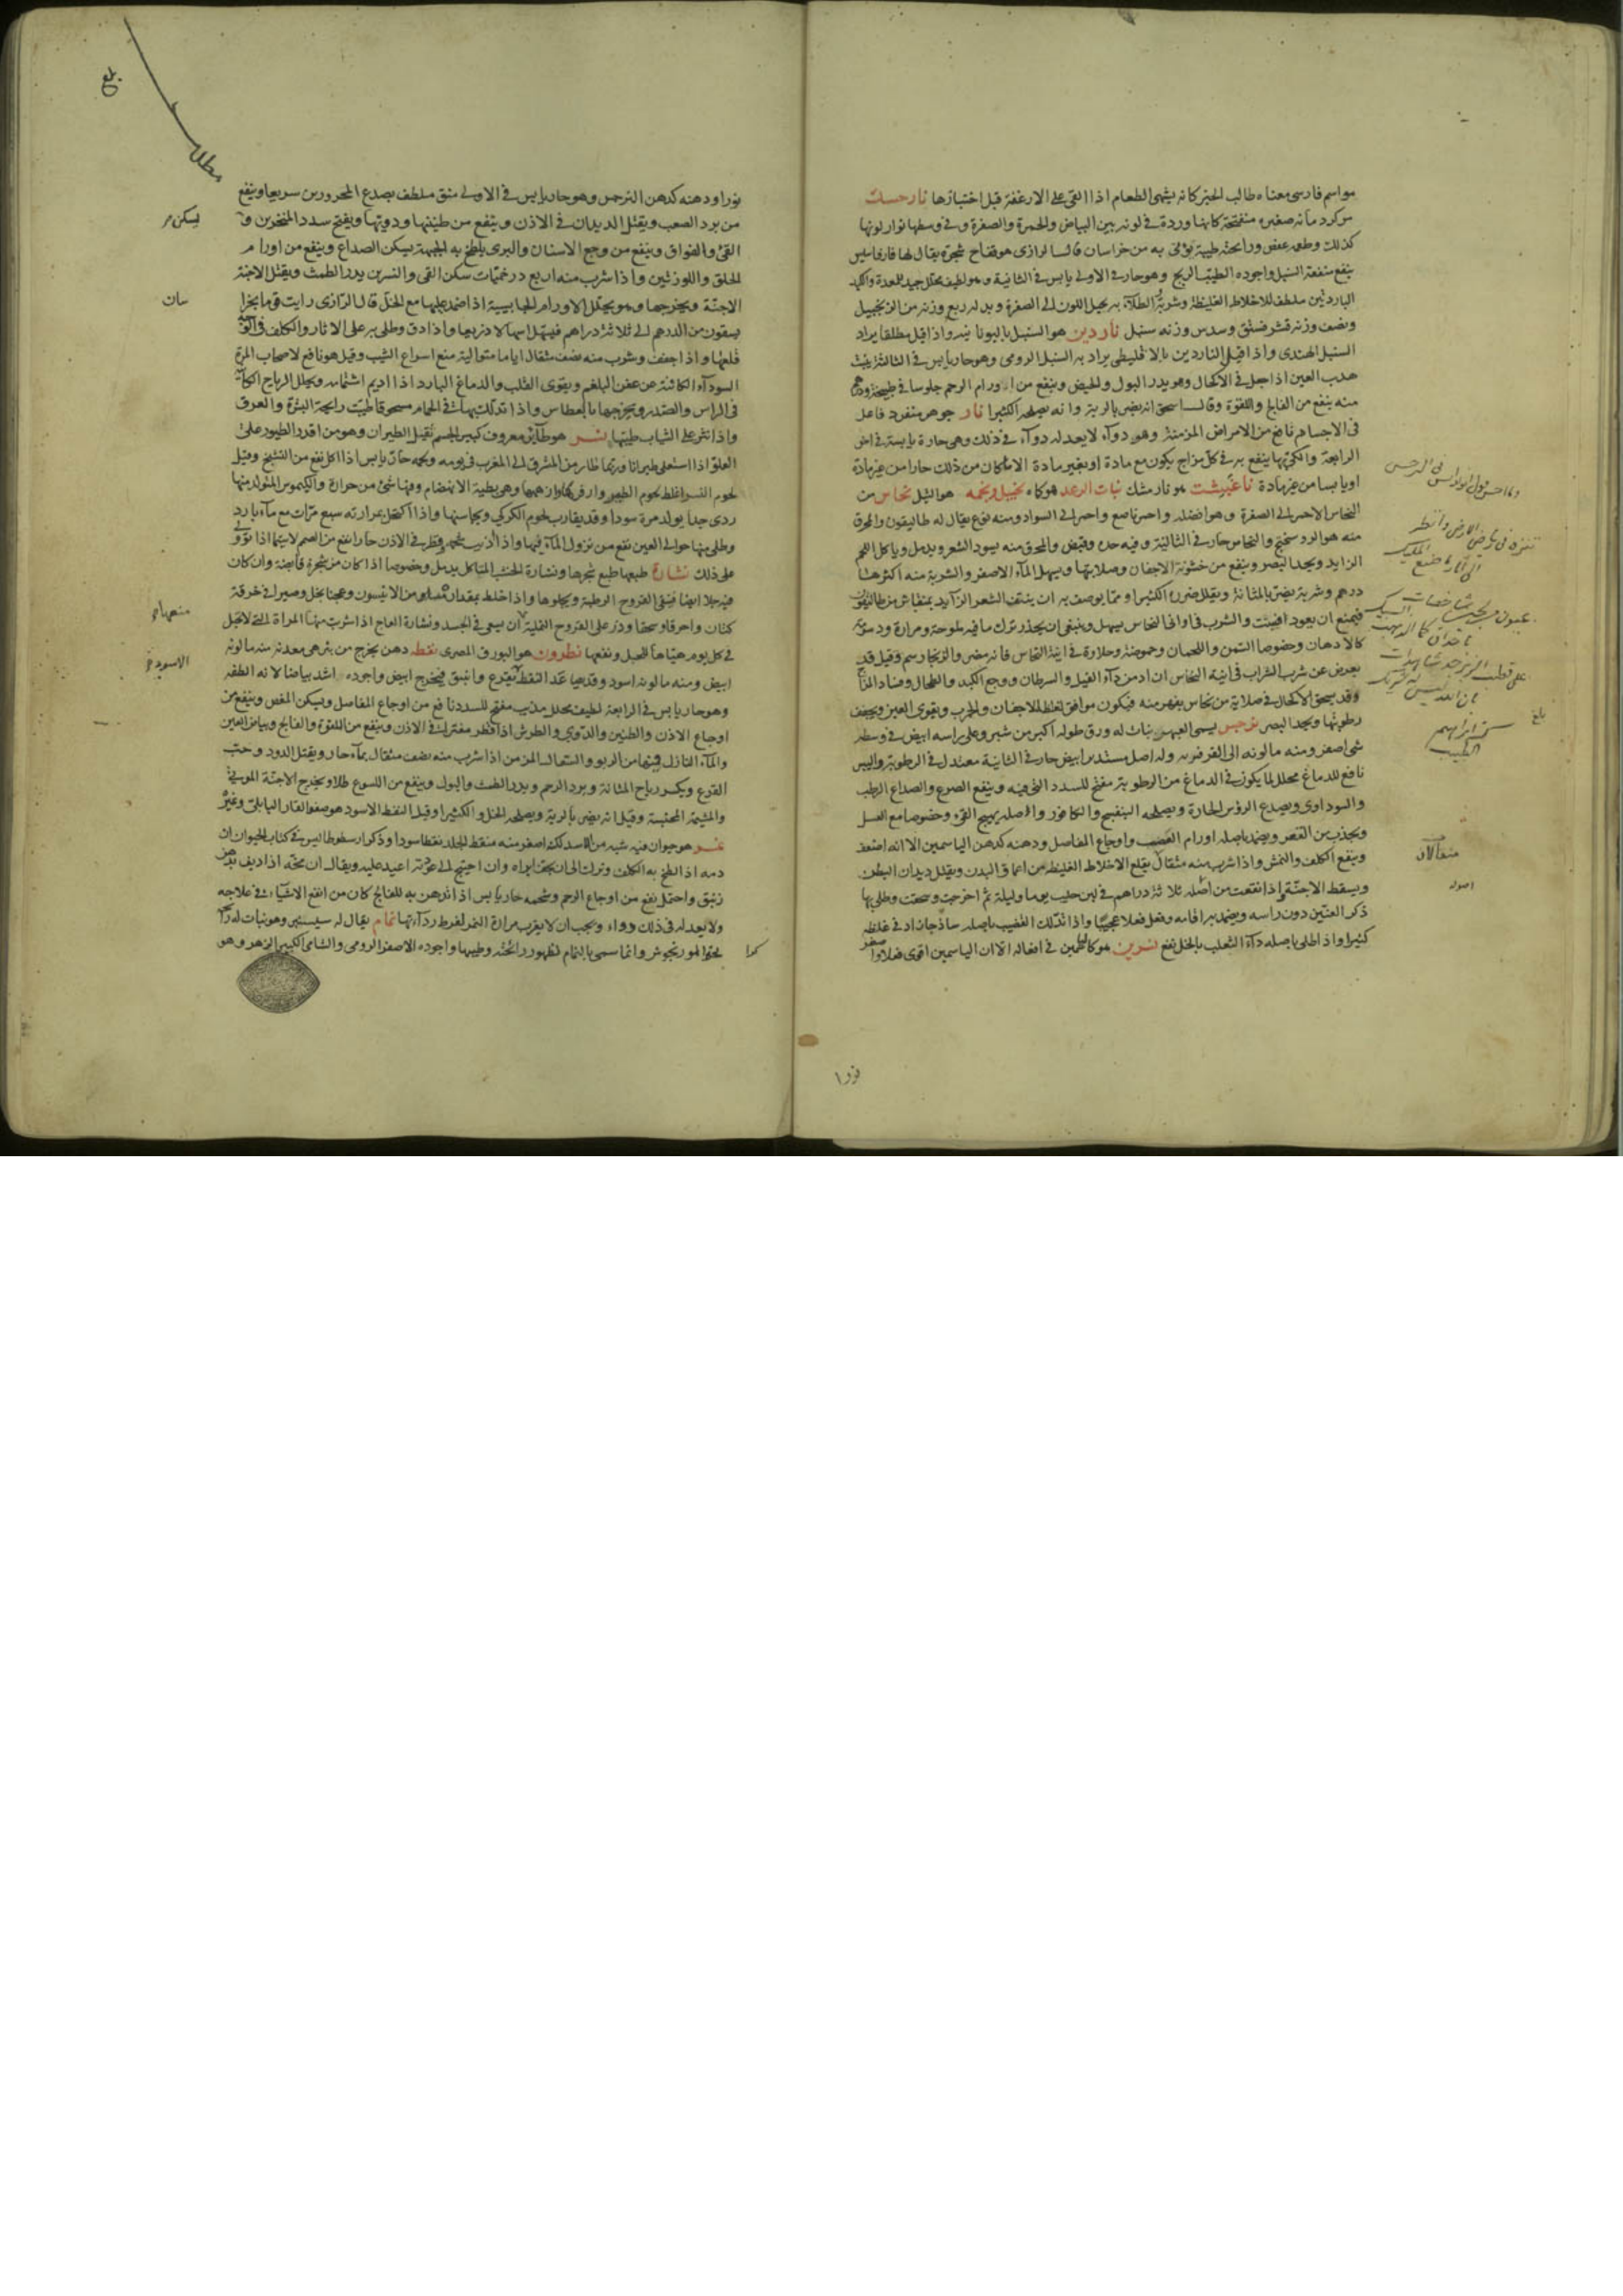 هو اسم فارسى معناه طالب الخبز كانه يشهى الطعام اذا القى على الارغفة قبل اختبازها نارمشك
هو كرد مانة صغيرة منفتحة كانها وردة فى لونه بين البياض والحمرة والصفرة وفى وسطها نوار لونها
كذلك وطعمه عفص ورائحته طيبة يؤتى به من خراسان قال الرازى هو فقاح شجرة يقال لها
ينفع منفعة السنبل واجوده الطيب الريح وهو حار فى الاولى يابس فى الثانية وهو لطيف محلل جيد للمعدة والكبد
الباردتين ملطف للاخلاط الغليظة وشربه الطلاء به يحيل اللون الى الصفرة وبدله ربع وزنه من الزنجبيل
ونصف وزنه قشر فستق وسدس وزنه سنبل ناردين هو السنبل باليونانية واذا قيل مطلقا يراد
السنبل الهندى واذا قيل الناردين بالاقليطى يراد به السنبل الرومى وهو حار يابس فى الثالثة ينبت
هدب العين اذا جعل فى الاكحال وهو يدر البول والحيض وينفع من اورام الرحم جلوسا فى طبيخه
منه ينفع من الفالج واللقوة وقال اسحق انه يضر بالرية وانه يصلحه الكثيرا نار جوهر منفرد فاعل
فى الاجسام نافع من الامراض المزمنة وهو دواء لا يعدله دواء فى ذلك وهى حارة يابسة فى اخر
الرابعة والكى بها ينفع به فى كل مزاج يكون مع مادة او بغير مادة الا ما كان من ذلك حارا من غير مادة
او يابسا من غير مادة ناغبشت هو نارمشك نبات الرعد هو كماه نجيل ونجمه هو الثيل نحاس من
النحاس الاحمر الى الصفرة وهو افضله واحمر ناصع واحمر الى السواد ومنه نوع يقال له طاليقون والمحرق
منه هو الروسختج والنحاس حار فى الثالثة وفيه حدة وقبض والمحرق منه يسود الشعر ويدمل وياكل اللحم
الزايد ويحد البصر وينفع من خشونة الاجفان وصلابتها ويسهل الماء الاصفر والشربة منه اكثرها
درهم وشربه يضر بالمثانة ويقلل ضرره الكثيرا ومما يوصف به ان ينتف الشعر الزايد بمنقاش من طاليقون
فيمنع ان يعود انبت والشرب فى اوانى النحاس يسهل وينبغى ان يحذر ترك ما فيه ملوحة ومرارة ودسومة
كالادهان وخصوصا السمن واللحمان وحموضة وحلاوة فى انية النحاس فانه مضر والزنجار سم وقيل قد
يعرض عن شرب الشراب فى انية النحاس ان ادمن داء الفيل والسرطان ووجع الكبد والطحال وفساد المزاج
وقد يسحق الاكحال فى صلاية من نحاس بفهر منه فيكون موافق لغلظ الاجفان والجرب ويقوى العين ويجفف
رطوبتها ويحد البصر نرجس يسمى العبهر نبات له ورق طوله اكبر من شبر وعلى راسه ابيض فى وسطه
شى اصفر ومنه ما لونه الى الفرفير وله اصل مستدير ابيض حار فى الثانية معتدل فى الرطوبة واليبس
نافع للدماغ محلل لما يكون فى الدماغ من الرطوبة مفتح للسدد التى فيه وينفع الصرع والصداع الرطب
والسوداوى ويصدع الرؤس الحارة ويصلحه البنفسج والكافور والاصل يهيج القى وخصوصا مع العسل
ويجذب من القعر ويضمد باصله اورام العصب واوجاع المفاصل ودهنه كدهن الياسمين الا انه اضعف
وينفع الكلف والنمش واذا شرب منه مثقال يقلع الاخلاط الغليظة من اعماق البدن ويقتل ديدان البطن
ويسقط الاجنة واذا نقعت من اصله ثلاثة دراهم فى لبن حليب يوما وليلة ثم اخرجت وسحقت وطلى بها
ذكر العنين دون راسه ويضمد به اقامه وفعل فعلا عجيبا واذا تدلك القضيب باصله ساذجا زاد فى غلظه
كثيرا واذا طلى باصله داء الثعلب بالخل نفع نسرين هو كالياسمين فى افعاله الا ان الياسمين اقوى فعلا
وما احسن قول ابو نواس فى النرجس
تنزه فى رياض الارض وانظر
الى آثار ما صنع المليك
عيون من لجين شاخصات
باحداق كما الذهب السبيك
على قضب الزبرجد شاهدات
بان الله ليس له شريك
ابراهيم
الطبيب
بلغ
مثقالان
اصوله
نورا
نورا ودهنه كدهن النرجس وهو حار يابس فى الاولى منق ملطف يصدع المحرورين سريعا وينفع
من برد العصب ويقتل الديدان فى الاذن وينفع من طنينها ودويها ويفتح سدد المنخرين
القئ والفواق وينفع من وجع الاسنان والبرى يلطخ به الجبهة يسكن الصداع وينفع من اورام
الحلق واللوزتين واذا شرب منه اربع درخميات سكن القى والنسرين يدر الطمث ويقتل الاجنة
الاجنة ويخرجها وهو يحلل الاورام الحجابية اذا ضمد عليها مع الخل قال الرازى رايت قوما بخرا
يسقون من الدرهم الى ثلاثة دراهم فيسهل اسهالا ذريعا واذا دق وطلى به على الاثار والكلف فى الوجه
قلعها واذا جفف وشرب منه نصف مثقال اياما متوالية منع اسراع الشيب وقيل هو نافع لاصحاب المرة
السوداء الكائنة عن عفن البلغم ويقوى القلب والدماغ البارد اذا اديم اشتمامه ويحلل الرياح الكائنة
فى الراس والصدر ويخرجها بالعطاس واذا تدلك به فى الحمام مسحوقا طيب رايحة البشرة والعرق
واذا نثر على الثياب طيبها نسر هو طائر معروف كبير الجسم ثقيل الطيران وهو من اقدر الطيور على
العلو اذا استعلى طيرانا وربما طار من المشرق الى المغرب فى يومه ولحمه حار يابس اذا اكل نفع من التشنج وقيل
لحوم النسر اغلظ لحوم الطيور وهى بطية الانهضام وفيها شئ من حرارة والكيموس المتولد منها
ردى جدا يولد مرة سودا وقد يقارب لحوم الكركى ويجانسها واذا اكتحل بمرارته سبع مرات مع ماء بارد
وطلى منها حوالى العين نفع من نزول الماء فيها واذا اذيب شحمه وقطر فى الاذن حارا نفع من الصمم لاسيما اذا توالى
على ذلك نشارة طبعها طبع شجرها ونشارة الخشب المتاكل يدمل وخصوصا اذا كان من شجرة قابضة وان كان
فيه جلا ايضا فينقى القروح الرطبة ويجلوها واذا خلط بمقدار مساو من الانيسون وعجنا بخل وصيرا فى خرقة
كتان واحرقا وسحقا وذر على القروح النملية ان يسعى فى الجسد ونشارة العاج اذا شربت منها المراة التى لا تحبل
فى كل يوم هياها للحبل ونفعها نطرون هو البورق المصرى نفط دهن يخرج من بئر هى معدنه منه ما لونه
ابيض ومنه ما لونه اسود وقد يصاعد النفط بقرع وانبيق فيخرج ابيض واجوده اشد بياضا لانه الطفه
وهو حار يابس فى الرابعة لطيف محلل مذيب مفتح للسدد نافع من اوجاع المفاصل ويسكن المغص وينفع من
اوجاع الاذن والطنين والدوى والطرش اذا قطر مفترا فى الاذن وينفع من اللقوة والفالج وبياض العين
والماء النازل فيها من الربو والسعال المزمن اذا شرب منه نصف مثقال بماء حار ويقتل الدود وحب
القرع ويكسر رياح المثانة وبرد الرحم ويدر الطمث والبول وينفع من اللسوع طلا ويخرج الاجنة الموتى
والمشيمة المحتبسة وقيل انه يضر بالرية ويصلحه الخل والكثيرا وقيل النفط الاسود هو صفو القار البابلى وغيره
نمر هو حيوان فيه شبه من الاسد لكنه اصغر منه منقط الجلد نقطا سودا وذكر ارسطوطاليس فى كتاب الحيوان ان
دمه اذا لطخ به الكلف وترك الى ان يجف ابراه وان احتيج الى عودة اعيد عليه ويقال ان مخه اذا اديف بدهن
زنبق واحتمل نفع من اوجاع الرحم وشحمه حار يابس اذا ادهن به للفالج كان من انفع الاشياء فى علاجه
ولا يعدله فى ذلك دواء ويجب ان لا يقرب مرارة النمر لفرط رداءتها نمام يقال له سيسنبر وهو نبات
نحو المرزنجوش وانما سمى بالنمام لظهور رائحته وطيبها واجوده الاصفر الرومى والشامى الكبير الزهر وهو
مطلب
بلغ
يسكن
الاسود